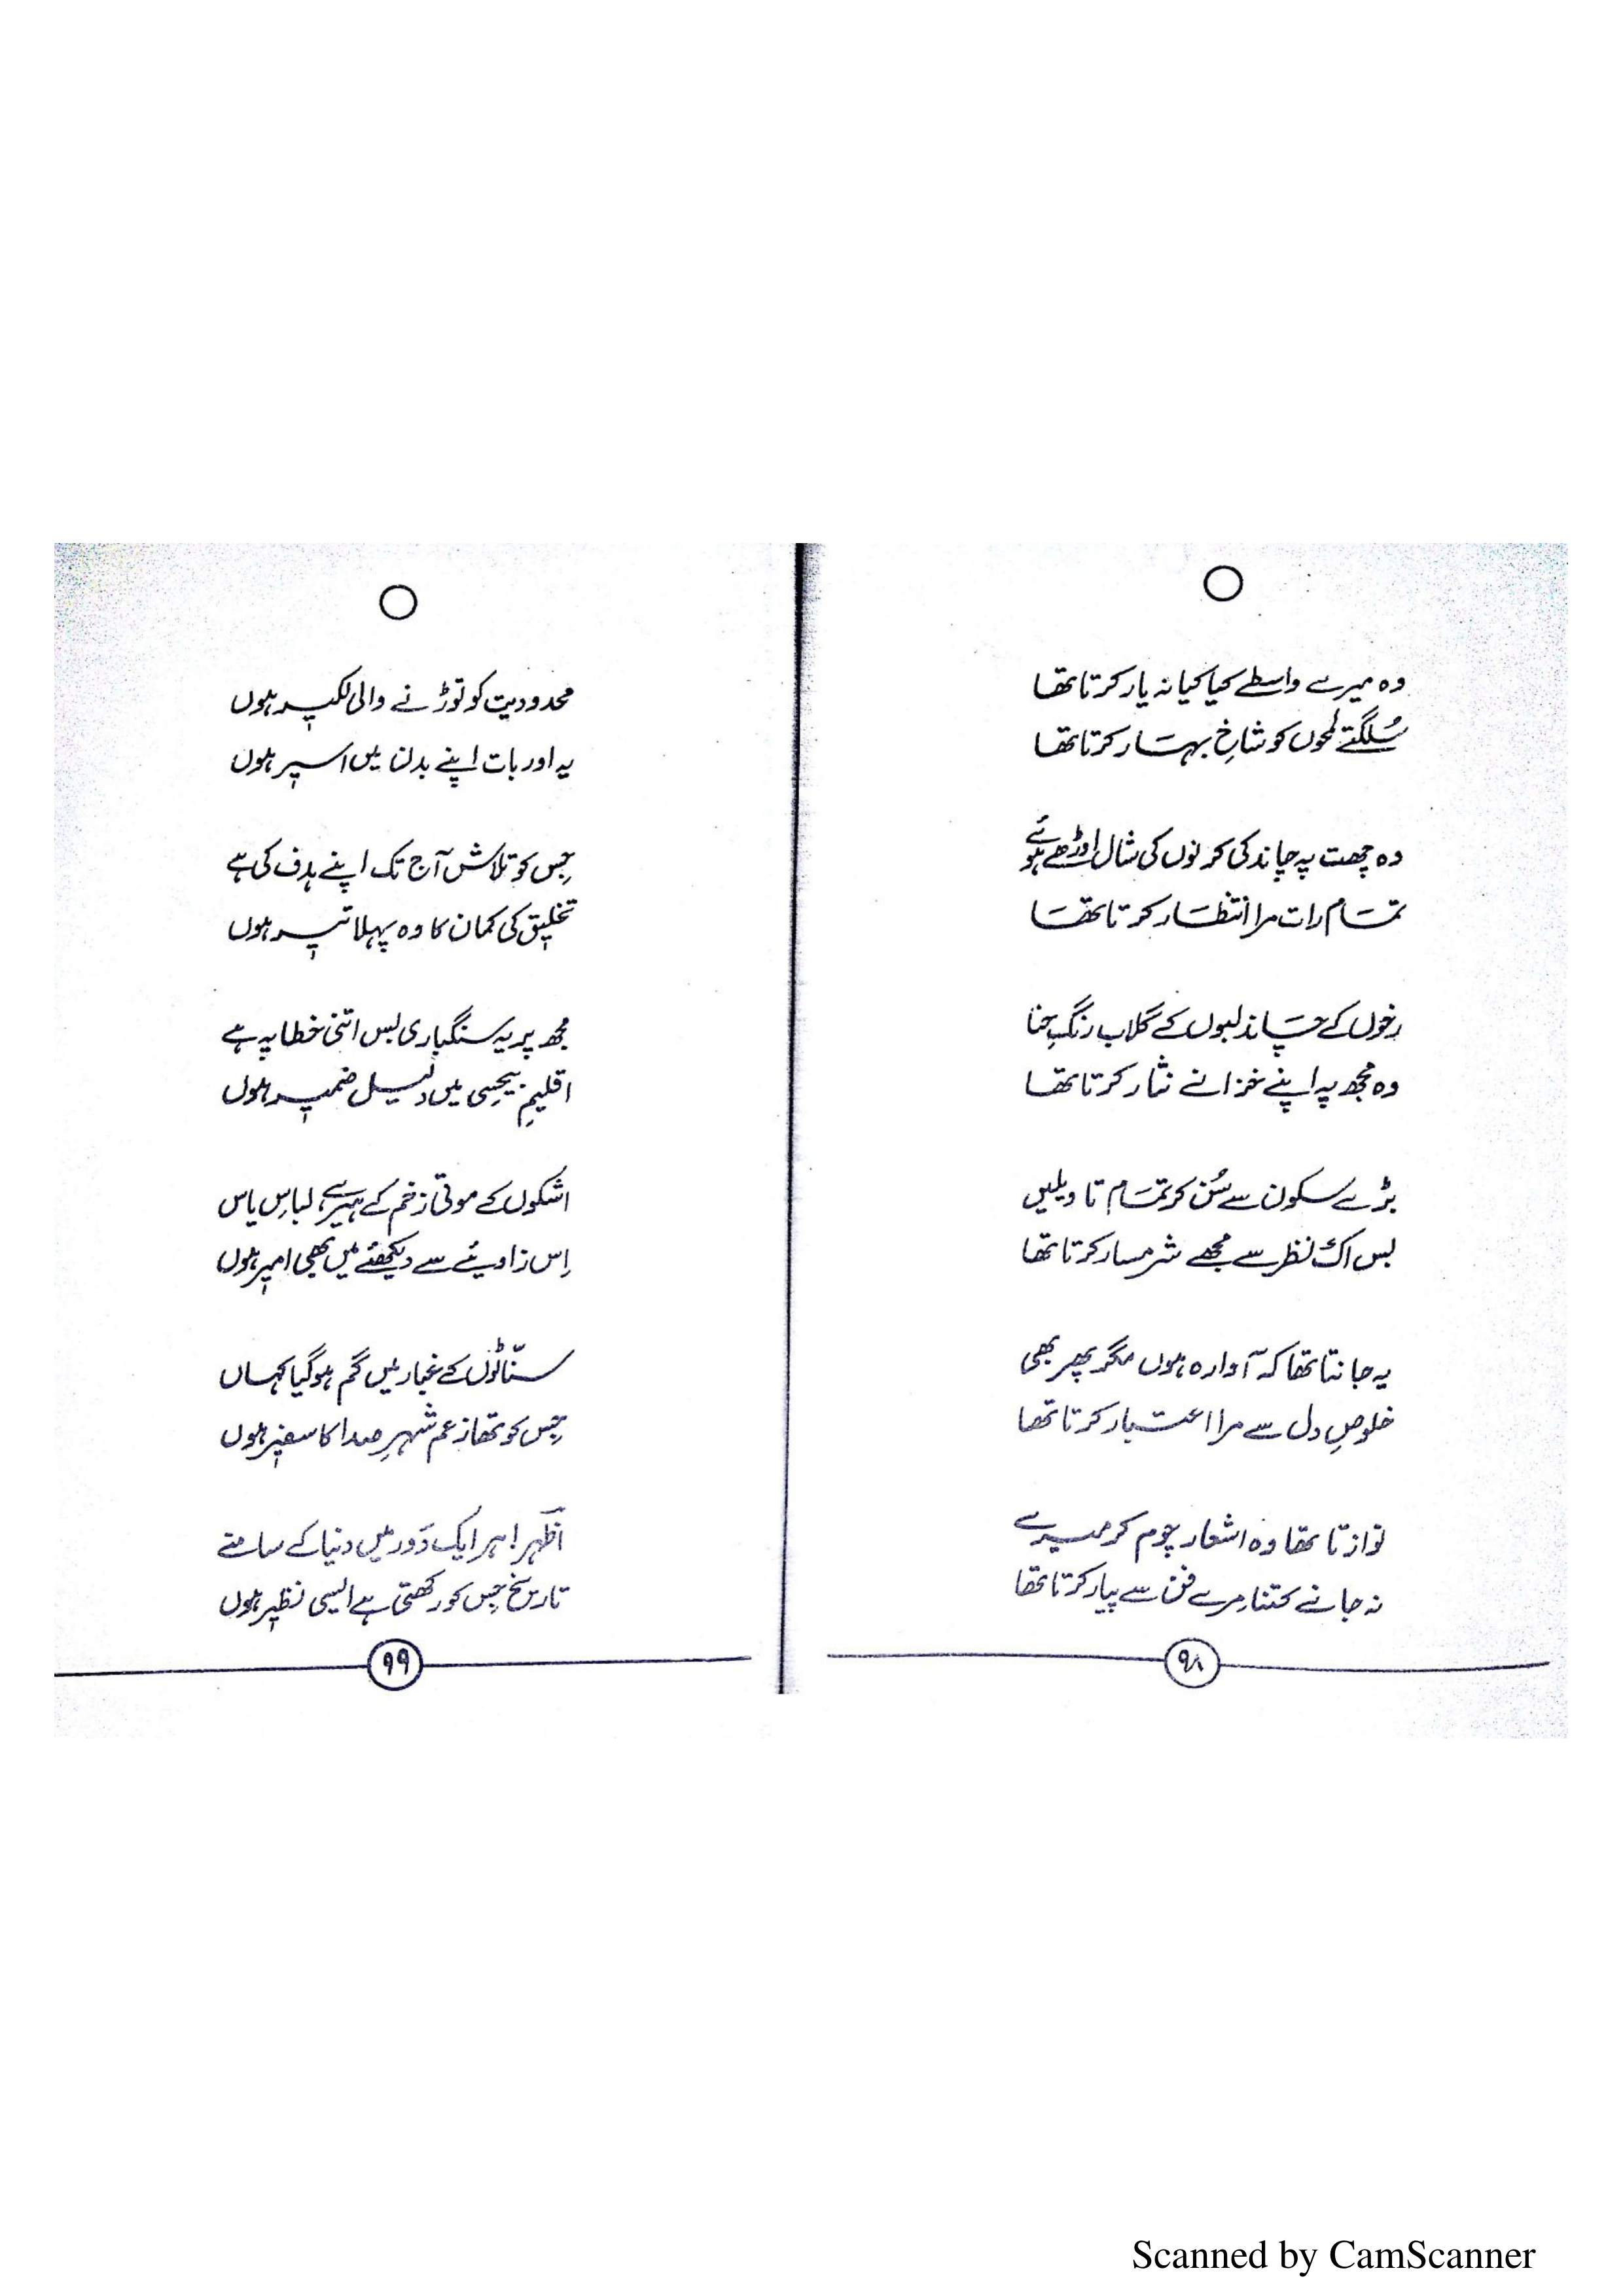 وہ میرے واسطے کیا کیا نہ یار کرتا تھا
سُلگتے لمحوں کو شاخِ بہار کرتا تھا
وہ چھت پہ چاند کی کرنوں کی شال اوڑھے ہوئے
تمام رات مرا انتظار کرتا تھا
رخوں کے چاند لبوں کے گلاب رنگِ حنا
وہ مجھ پہ اپنے خزانے نثار کرتا تھا
بڑے سکون سے سُن کر تمام تاویلیں
بس اک نظر سے مجھے شرمسار کرتا تھا
یہ جانتا تھا کہ آوارہ ہوں مگر پھر بھی
خلوصِ دل سے مرا اعتبار کرتا تھا
نوازتا تھا وہ اشعار چوم کر میرے
نہ جانے کتنا مرے فن سے پیار کرتا تھا
۹۸
محدودیت کو توڑنے والی لکیر ہوں
یہ اور بات اپنے بدن میں اسیر ہوں
جِس کو تلاش آج تک اپنے ہدف کی ہے
تخلیق کی کمان کا وہ پہلا تیر ہوں
مجھ پر یہ سنگباری بس اتنی خطا پہ ہے
اقلیمِ بیحسی میں دلیلِ ضمیر ہوں
اشکوں کے موتی زخم کے ہیرے، لباسِ یاس
اِس زاویئے سے دیکھئے میں بھی امیر ہوں
سنّاٹوں کے غبار میں گم ہو گیا کہاں
جِس کو تھا زعم شہرِ صدا کا سفیر ہوں
اظہر! ہر ایک دَور میں دنیا کے سامنے
تاریخ جِس کو رکھتی ہے ایسی نظیر ہوں
۹۹
Scanned by CamScanner